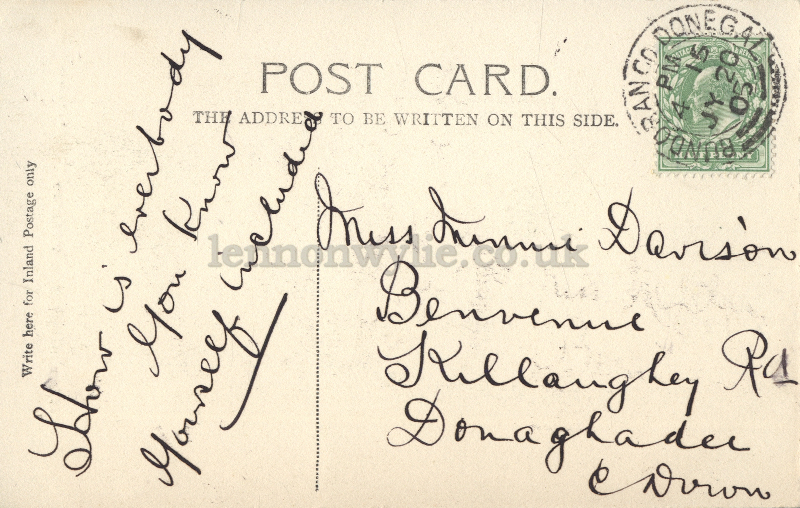 POST CARD.
THE ADDRESS TO BE WRITTEN ON THIS SIDE.
BUNDORAN CO. DONEGAL
4 15 PM
JY 20
05
Write here for Inland Postage only
How is everbody
You know
Yourself included
Miss Minnie Davison
Benvenue
Killaughey Rd
Donaghadee
C Down
lennonwylie.co.uk